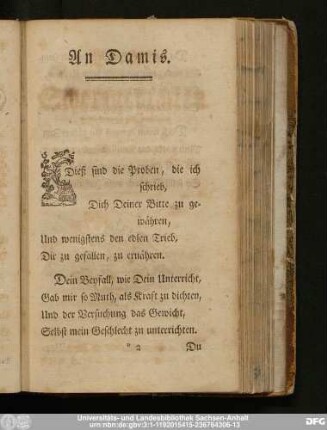 An Damis.
Dieß sind die Proben, die ich
schrieb,
Dich Deiner Bitte zu ge-
währen,
Und wenigstens den edlen Trieb,
Dir zu gefallen, zu ernähren.
Dein Beyfall, wie Dein Unterricht,
Gab mir so Muth, als Kraft zu dichten,
Und der Versuchung das Gewicht,
Selbst mein Geschlecht zu unterrichten.
* 2 Du
Universitäts- und Landesbibliothek Sachsen-Anhalt
urn:nbn:de:gbv:3:1-1192015415-236764306-13
DFG